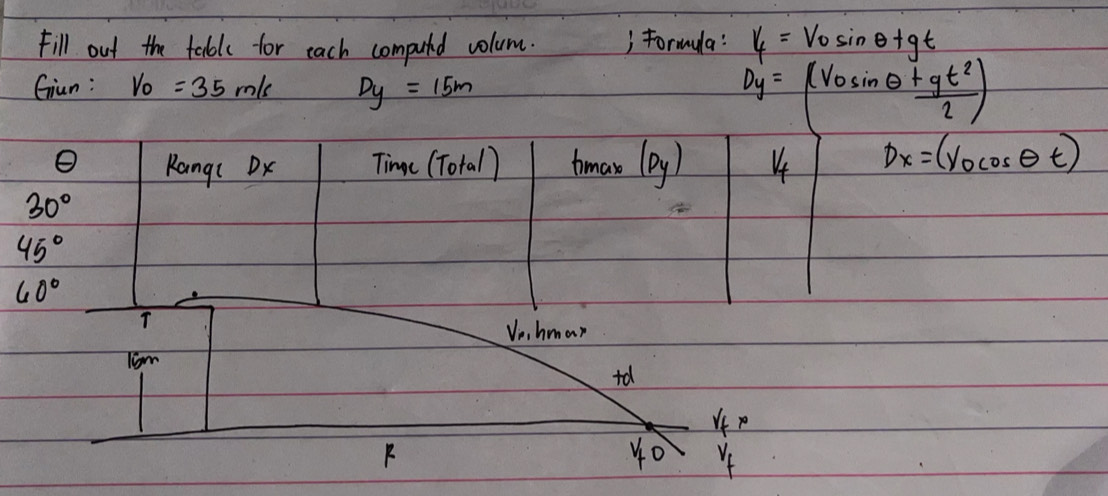 Fill out the table for each computed volum. ; Formula: Vf = Vo sin θ + gt
Giun: Vo = 35 m/s Dy = 15m Dy = (Vo sin θ + gt²/2)
θ Range Dx Time (Total) hmax (Dy) Vf Dx = (Vo cos θ t)
30°
45°
60°
15m
Vx, hmax
td
Vf x
R Vf 0 Vf